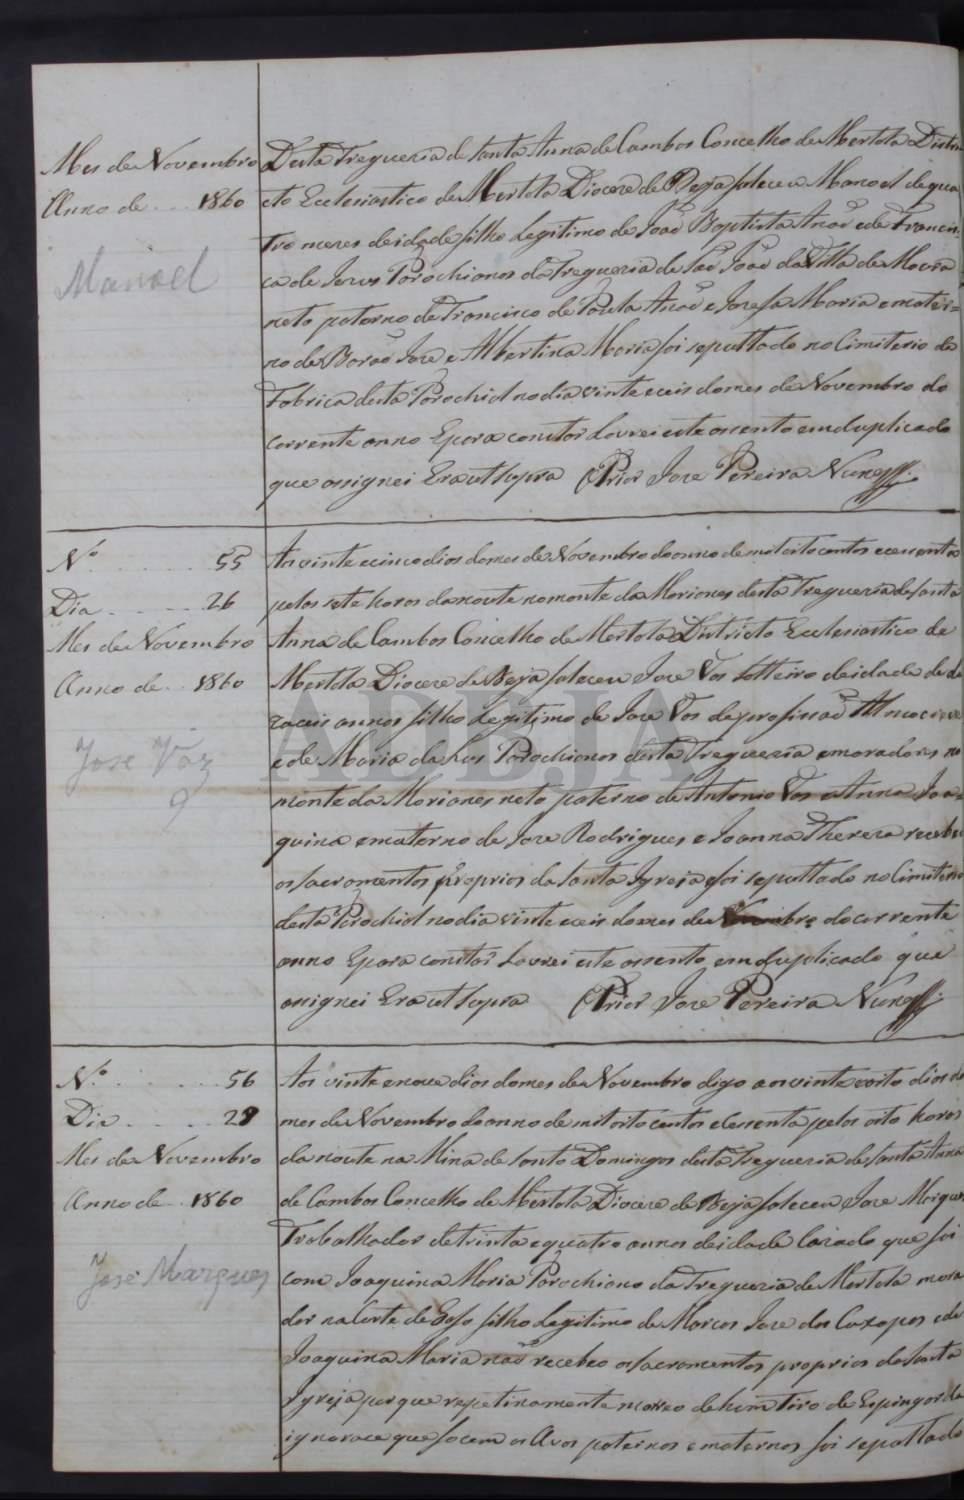 Mes de Novembro
Anno de 1860
Manoel
Desta Freguezia de Santa Anna de Cambas Concelho de Mertola Distri
cto Ecclesiastico de Mertola Diocese de Beja faleceu Manoel de qua
tro mezes de idade filho Legitimo de João Baptista Anaõ e de Francis
ca de Jezus Parochianos da Freguezia de São João da Villa de Moura
neto paterno de Francisco de Paula Anaõ e Josefa Maria e mater=
no de José e Albertina Maria foi sepultado no Cimiterio da
Fabrica desta Parochial no dia vinte e seis do mes de Novembro do
corrente anno E para constar Lavrei este assento em duplicado
que assignei Era ut supra O Prior Jose Pereira Nunes
Nº 55
Dia 26
Mes de Novembro
Anno de 1860
Jose Vaz
Aos vinte e cinco dias do mes de Novembro do anno de mil oito centos e cecenta
pelas sete horas da noute no monte da Morianes desta Freguezia de Santa
Anna de Cambas Concelho de Mertola Districto Ecclesiastico de
Mertola Diocese de Beja faleceu Jose Vas solteiro de idade de de
zaceis annos filho Legitimo de Jose Vas de profissaõ
e de Maria da Parochianos desta Freguezia e moradores no
monte da Morianes neto paterno de Antonio Vas e Anna Joa=
quina e materno de Jose Rodrigues e Joanna Thereza recebeo
os sacramentos proprios da Santa Igreja foi sepultado no Cimiterio
desta Parochial no dia vinte e seis do mes de Novembro do corrente
anno E para constar Lavrei este assento em duplicado que
assignei Era ut supra O Prior Jose Pereira Nunes
ADBJA
Nº 56
Dia 28
Mes de Novembro
Anno de 1860
José Marques
Aos vinte e nove dias do mes de Novembro digo aos vinte e oito dias do
mes de Novembro do anno de mil oito centos e cecenta pelas oito horas
da noute na Mina de Santo Domingos desta Freguezia de Santa Anna
de Cambas Concelho de Mertola Diocese de Beja faleceu Jose Marques
Trabalhador de trinta e quatro annos de idade Cazado que foi
com Joaquina Maria Parochiano da Freguezia de Mertola mora
dor na Corte de Gafo filho Legitimo de Marcos Jose dos e de
Joaquina Maria não recebeo os sacramentos proprios da Santa
Igreja porque repetinamente morreo de hum tiro de Espingarda
ignorace que focem os Avos paternos e maternos foi sepultado